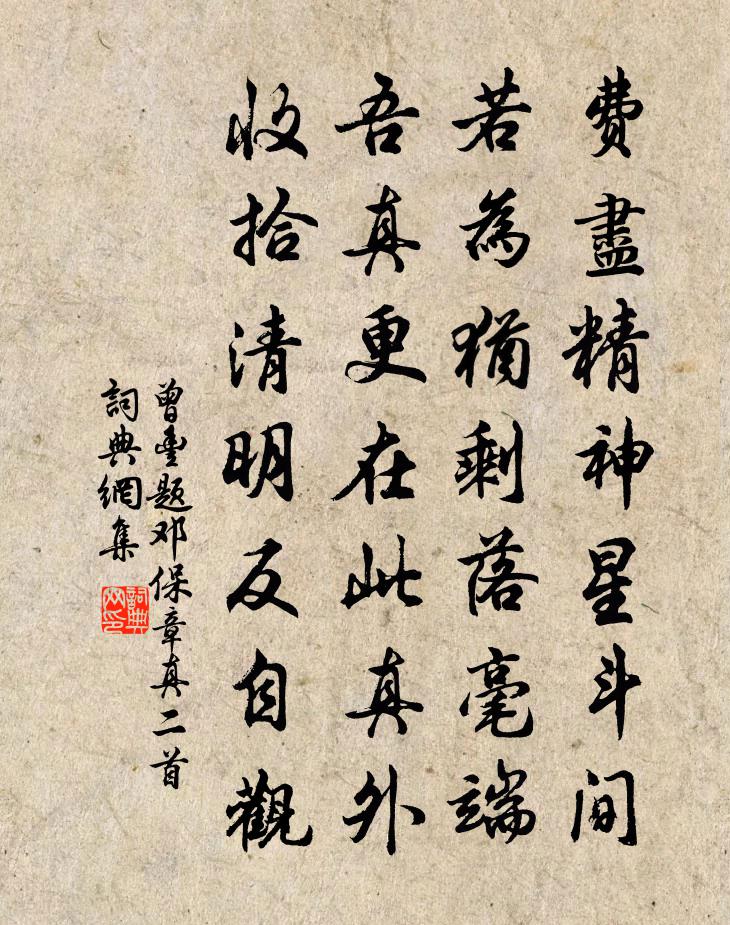 費盡精神星斗間
若為猶剩落毫端
吾真更在此真外
收拾清明反自觀
曾豐題邓保章真二首
詞典網集
詞典
网印